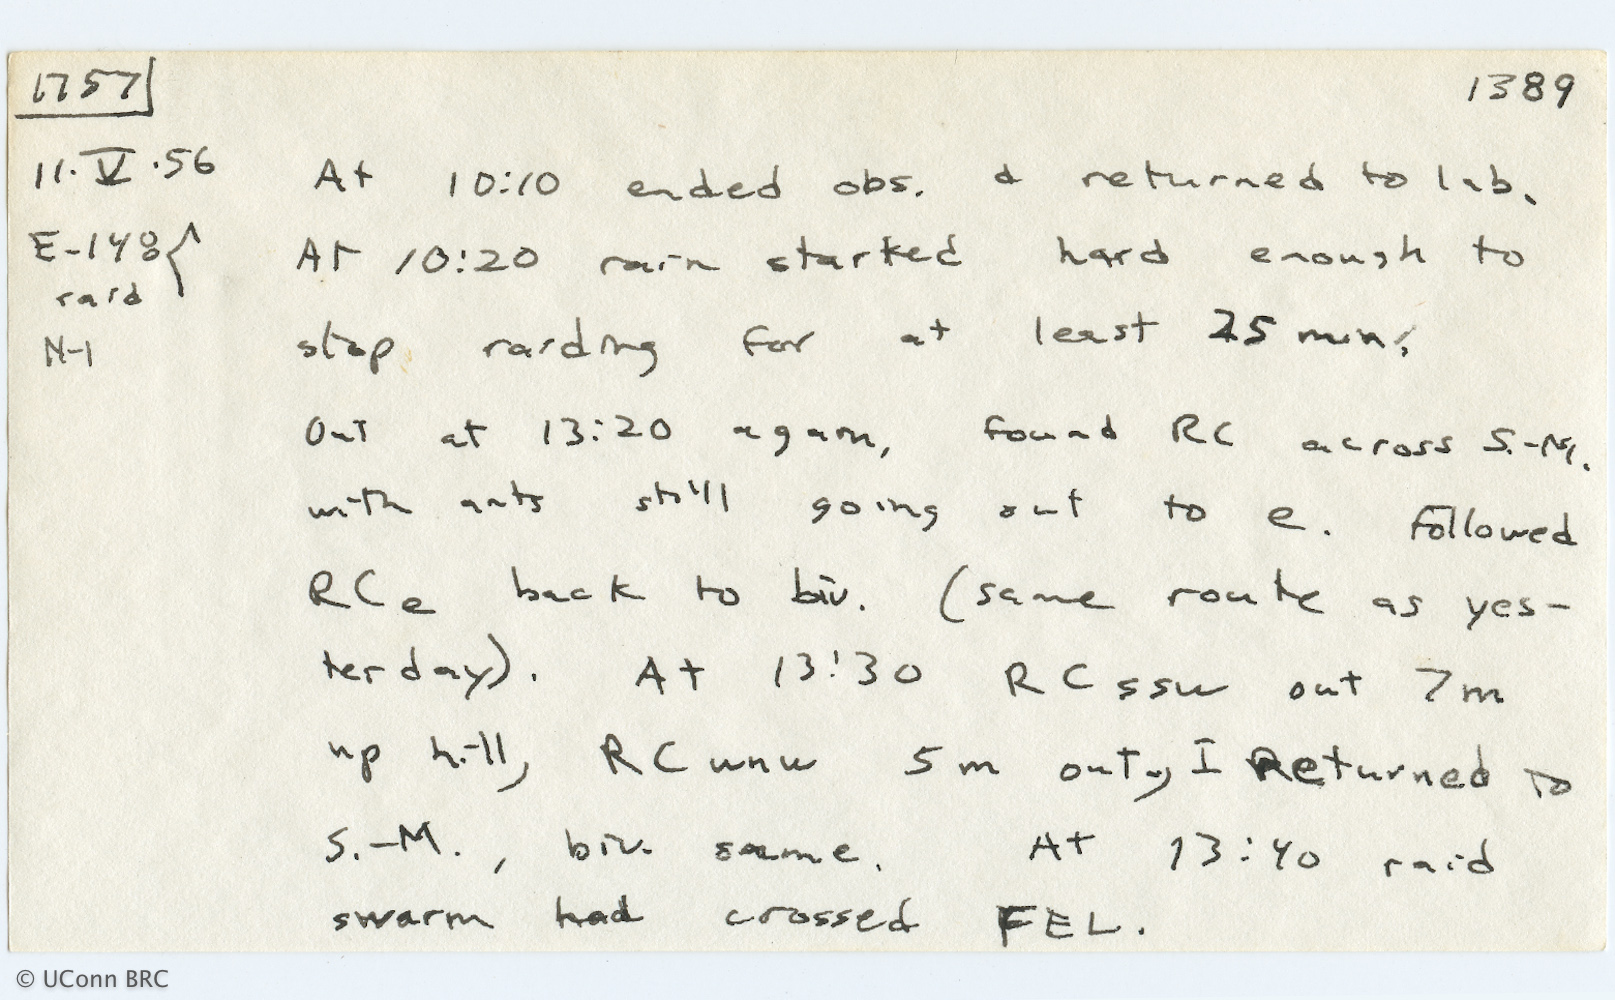 1757
1389
11.V.56
E-148
raid
N-1
At 10:10 ended obs. & returned to lab.
At 10:20 rain started hard enough to
stop raiding for at least 25 min.
Out at 13:20 again, found RC across S.-M.
with ants still going out to e. Followed
RCe back to biv. (same route as yes-
terday). At 13:30 RCssw out 7m
up hill, RCwnw 5m out, I Returned to
S.-M., biv. same. At 13:40 raid
swarm had crossed FEL.
© UConn BRC